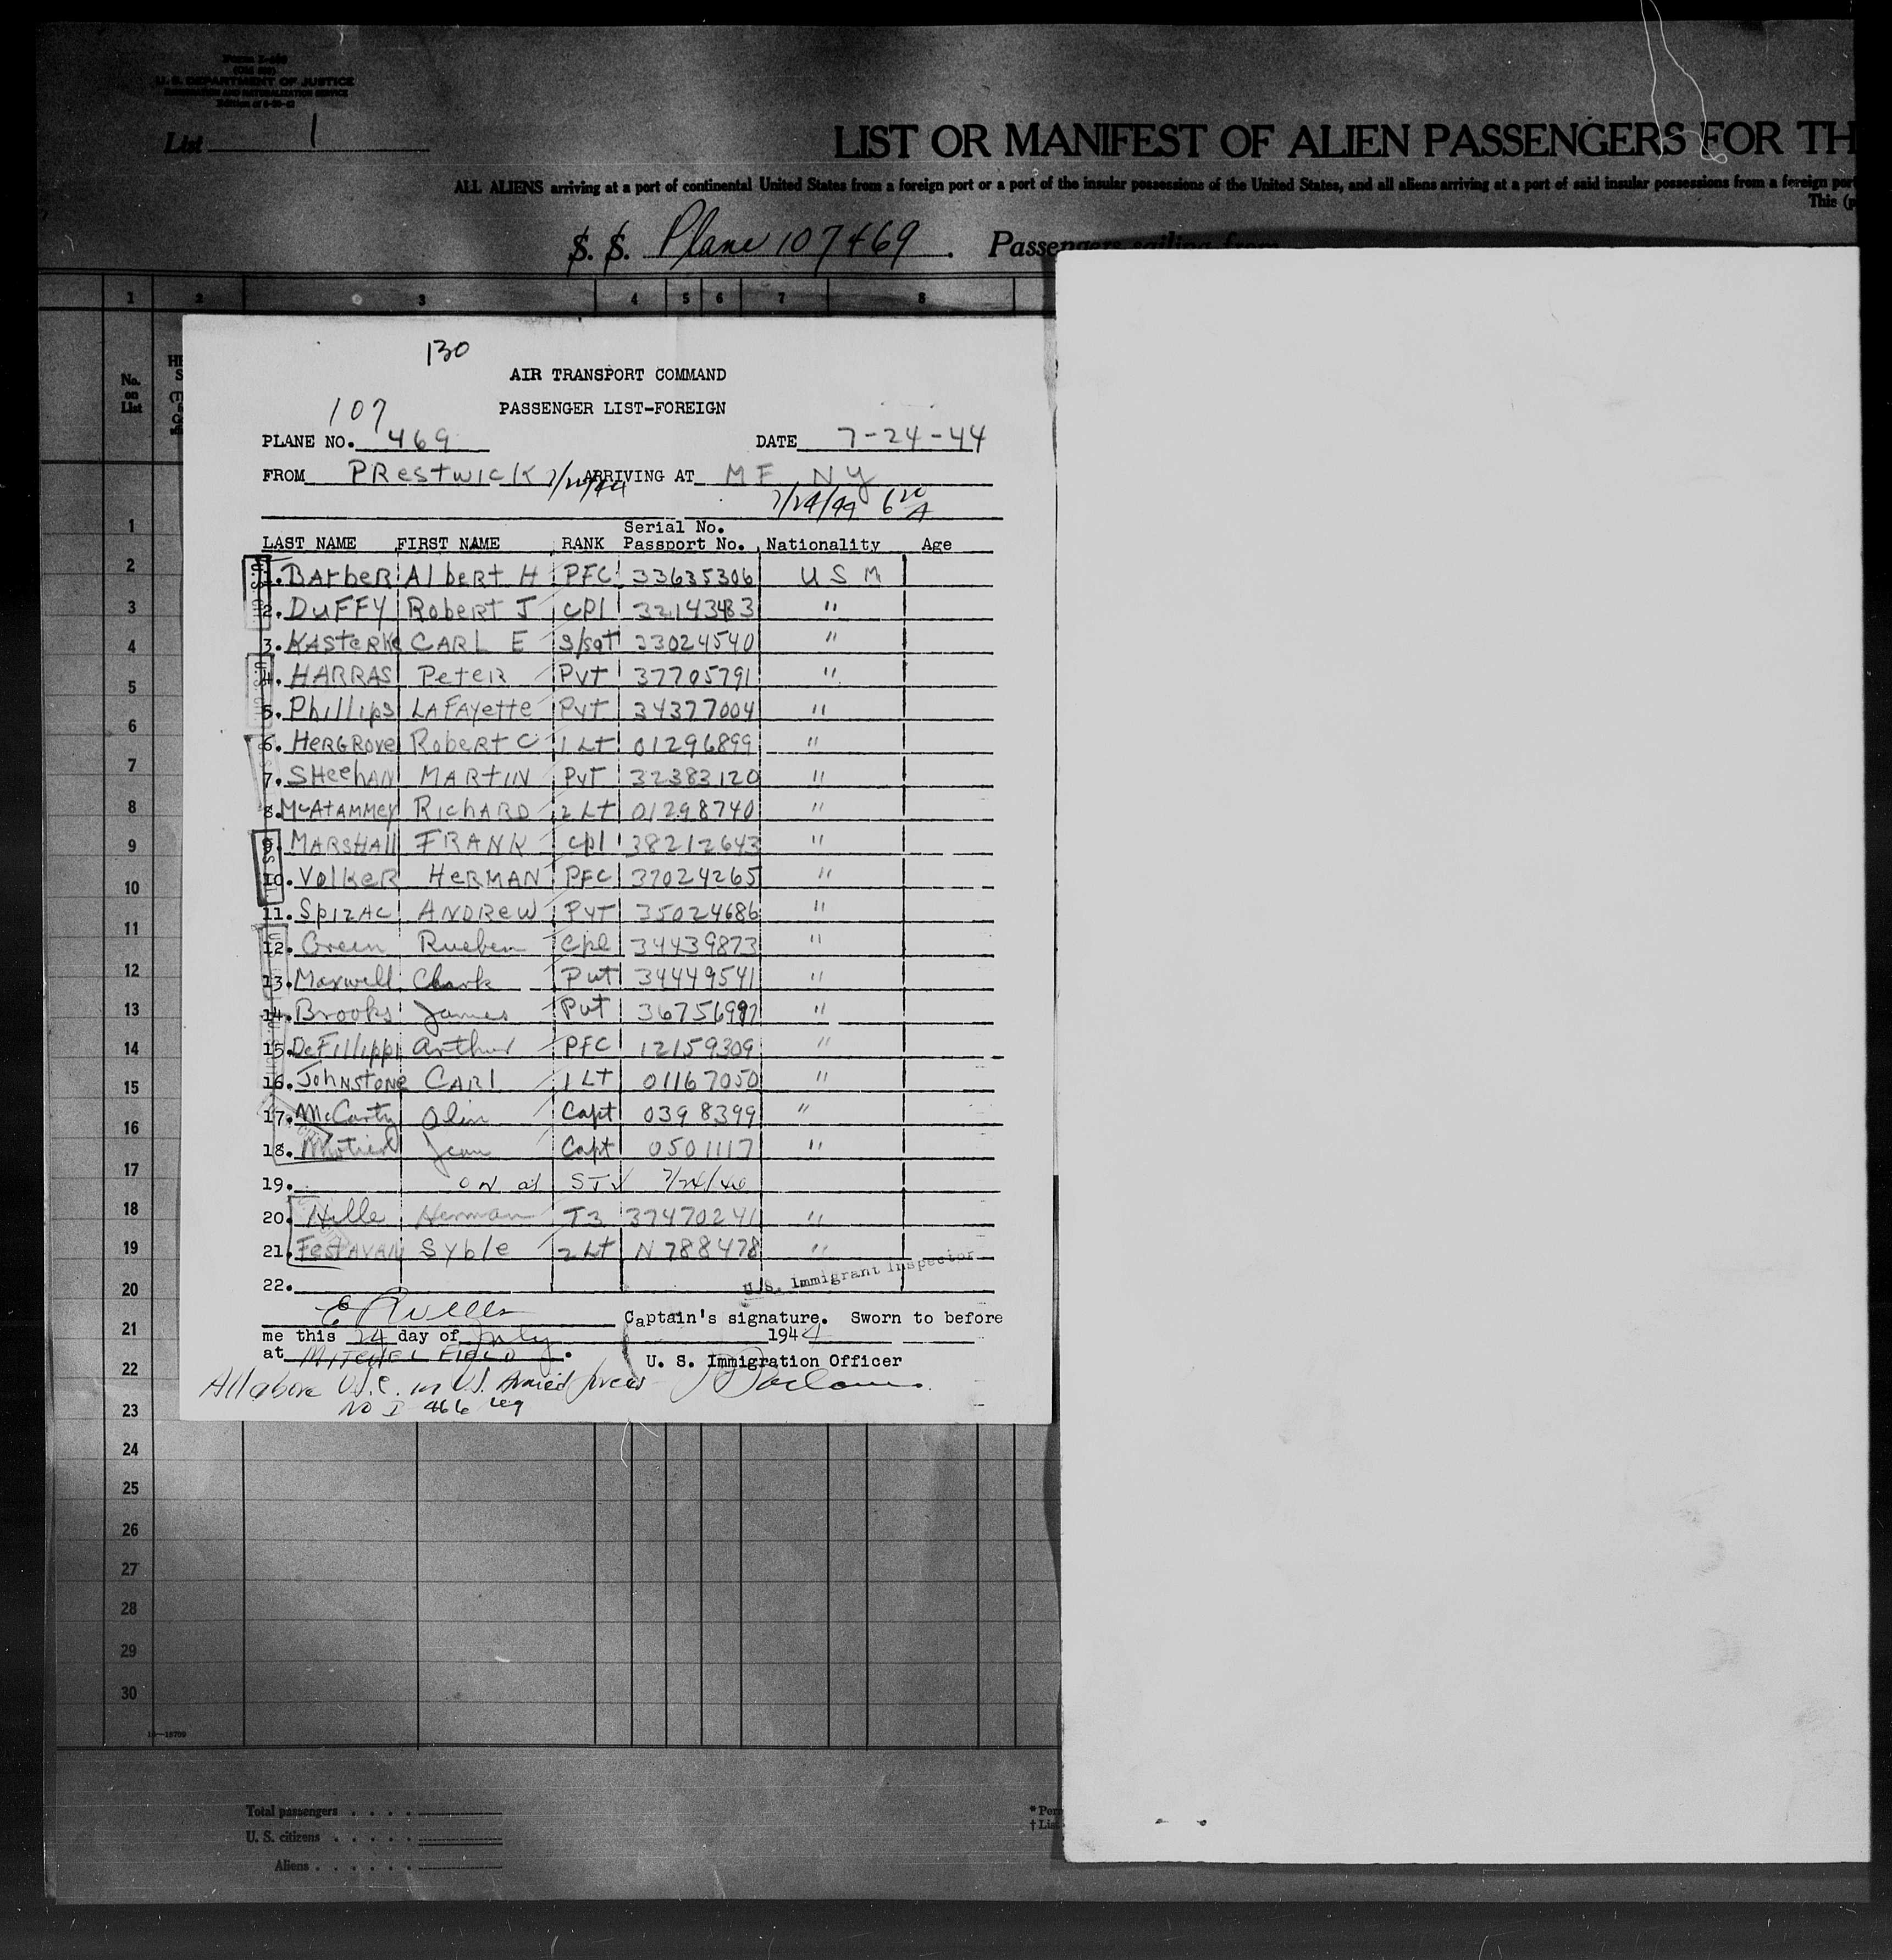 U. S. DEPARTMENT OF JUSTICE
IMMIGRATION AND NATURALIZATION SERVICE
List 1
LIST OR MANIFEST OF ALIEN PASSENGERS FOR TH
ALL ALIENS arriving at a port of continental United States from a foreign port or a port of the insular possessions of the United States, and all aliens arriving at a port of said insular possessions from a foreign por
This (p
S. S. Plane 107469. Passengers sailing from
1 2 3 4 5 6 7 8
No. on List
130
AIR TRANSPORT COMMAND
PASSENGER LIST-FOREIGN
107
PLANE NO. 469 DATE 7-24-44
FROM PRestwick ARRIVING AT MF NY
7/24/44 6 20 A
Serial No.
LAST NAME FIRST NAME RANK Passport No. Nationality Age
1. BArbeR Albert H PFC 33635306 U S M
2. DuFFY Robert J cpl 32143483 "
3. KAsterke CARL E S/sgt 33024540 "
4. HARRAS PeteR Pvt 37705791 "
5. Phillips LAFAyette Pvt 34377004 "
6. HerGRove Robert C 1 Lt 01296899 "
7. SHeehAN MARtIN PvT 32383120 "
8. McAtAMMey RichARD 2 Lt 01298740 "
9. MARSHAll FRANK cpl 38212643 "
10. VolkeR HeRMAN PFC 37024265 "
11. SpIzAc ANDRew PvT 35024686 "
12. Green Rueben Cpl 34439873 "
13. Maxwell Clark Pvt 34449541 "
14. Brooks James Pvt 36756997 "
15. DeFillippi Arthur PFC 12159309 "
16. JohNstoNe CARl 1 Lt 01167050 "
17. McCarty Olin Capt 0398399 "
18. Jean Capt 0501117 "
19. on at
20. Hille Herman T3 37470241 "
21. FestAVAN Syble 2 Lt N 788478 "
22.
U.S. Immigrant Inspector
Captain's signature. Sworn to before
me this 24 day of July 1944
at MITCHEL FIELD.
U. S. Immigration Officer
All above U.S.C. in U.S. Armed forces
No I 466
1
2
3
4
5
6
7
8
9
10
11
12
13
14
15
16
17
18
19
20
21
22
23
24
25
26
27
28
29
30
16—18709
Total passengers
U. S. citizens
Aliens
* Per
† List